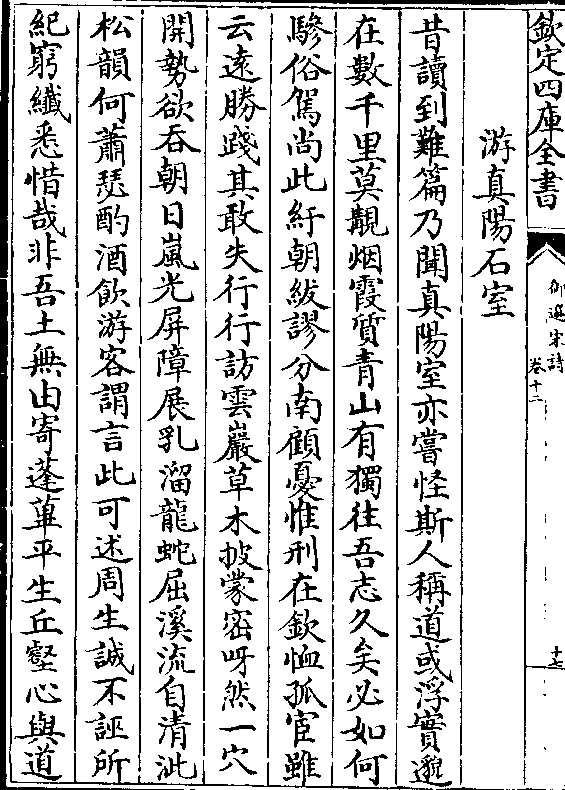 欽定四庫全書
御選宋詩
卷十二
十七
游真陽石室
昔讀到難篇乃聞真陽室亦嘗怪斯人稱道或浮實邈
在數千里莫覩烟霞質青山有獨往吾志久矣必如何
驂俗駕尚此紆朝紱謬分南顧憂惟刑在欽恤孤宦雖
云逺勝踐其敢失行行訪雲巖草木披蒙密呀然一穴
開勢欲吞朝日嵐光屏障展乳溜龍蛇屈溪流自清泚
松韻何蕭瑟酌酒飲游客謂言此可述周生誠不誣所
紀窮纖悉惜哉非吾土無由寄蓬蓽平生丘壑心與道